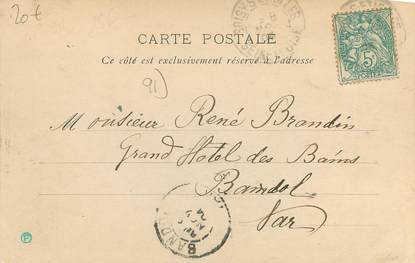 20€
CARTE POSTALE
Ce côté est exclusivement réservé à l'adresse
91)
Monsieur René Brandin
Grand Hotel des Bains
Bandol
Var
5
BANDOL